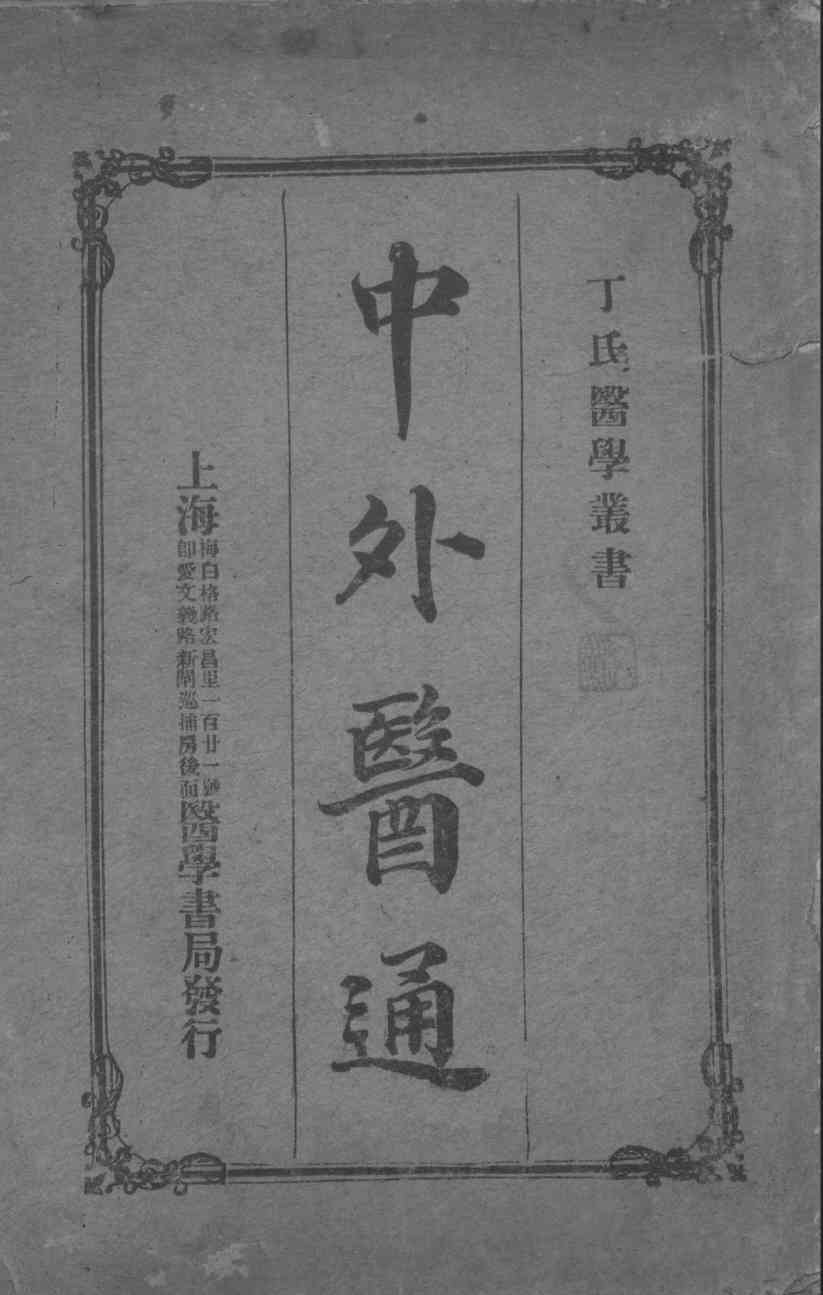 丁氏醫學叢書
中外醫通
上海
梅白格路宏昌里一百廿一號
即愛文義路新閘巡捕房後面
醫學書局發行